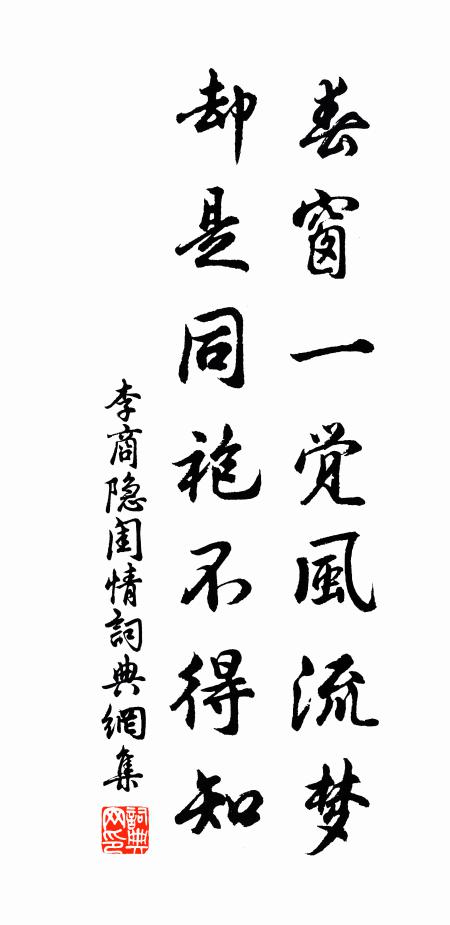 春窗一觉風流梦
却是同袍不得知
李商隐闺情詞典網集
詞典网印